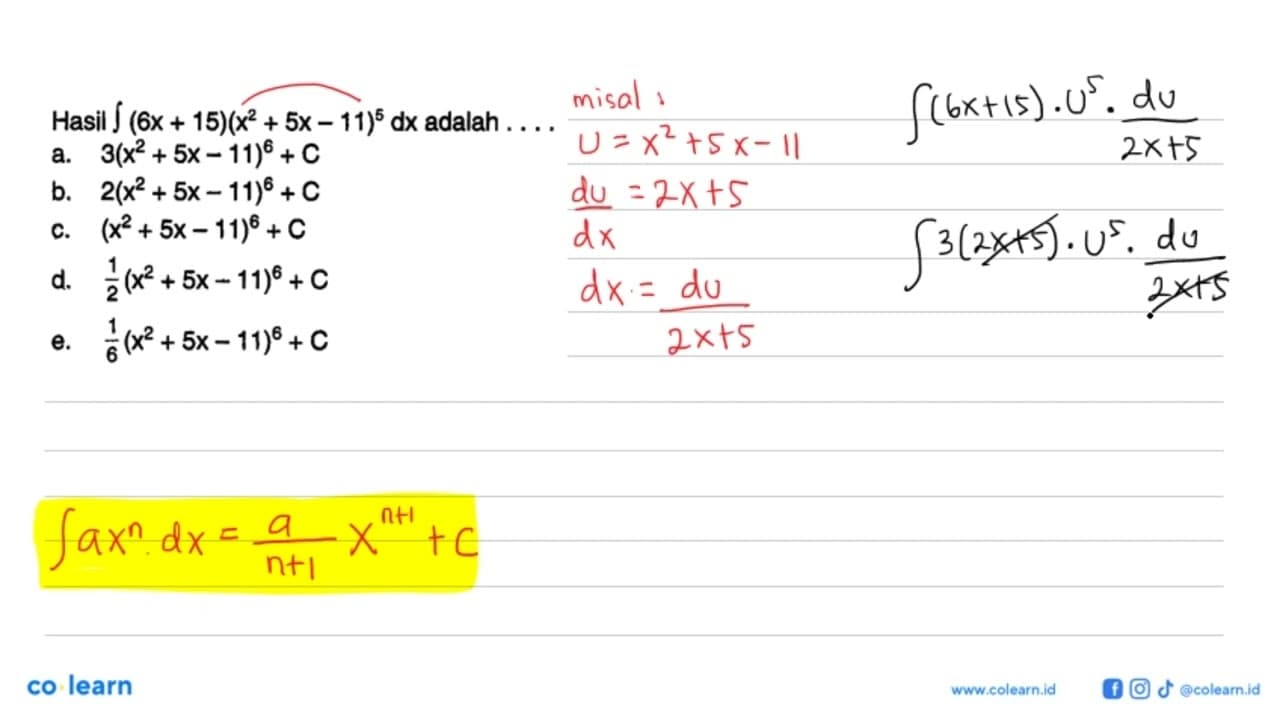 Hasil ∫ (6x + 15)(x² + 5x – 11)⁵ dx adalah . . . .
a. 3(x² + 5x – 11)⁶ + C
b. 2(x² + 5x – 11)⁶ + C
c. (x² + 5x – 11)⁶ + C
d. 1/2 (x² + 5x – 11)⁶ + C
e. 1/6 (x² + 5x – 11)⁶ + C
misal :
U = x² + 5x - 11
du/dx = 2x+5
dx = du/2x+5
∫(6x+15) . U⁵ . du/2x+5
∫3(2x+5) . U⁵ . du/2x+5
∫axⁿ. dx = a/n+1 xⁿ⁺¹ + C
co learn
www.colearn.id
@colearn.id